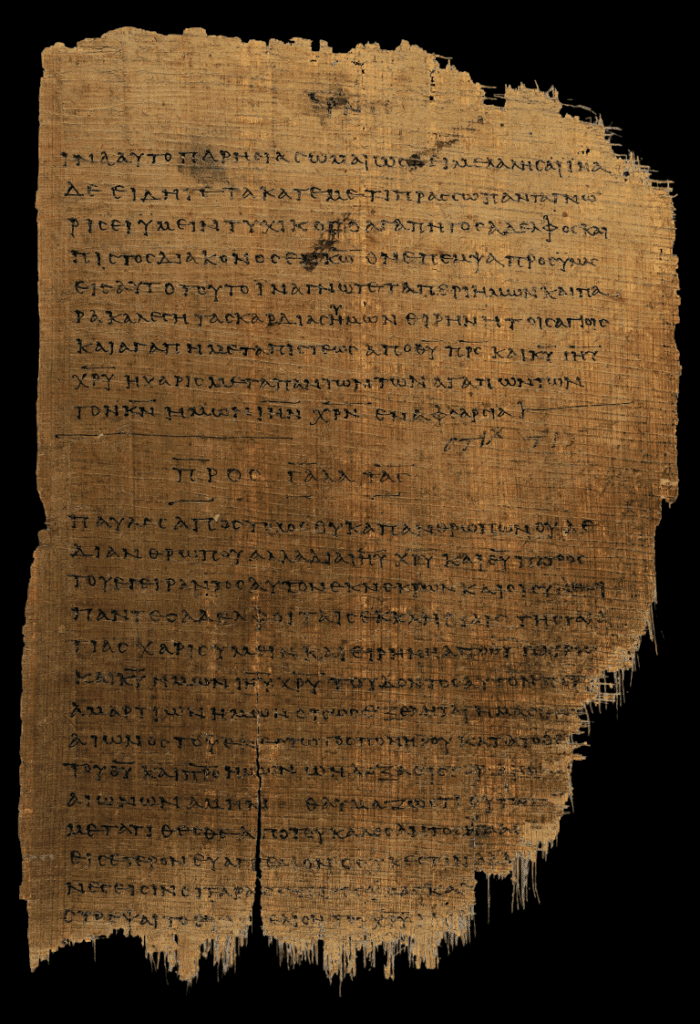 ΡΝ
ΙΝΑ ΑΥΤΟ ΠΑΡΗΣΙΑΣΩΜΑΙ ΩΣ ΔΕΙ ΜΕ ΛΑΛΗΣΑΙ ΙΝΑ
ΔΕ ΕΙΔΗΤΕ ΤΑ ΚΑΤ ΕΜΕ ΤΙ ΠΡΑΣΣΩ ΠΑΝΤΑ ΓΝΩ
ΡΙΣΕΙ ΥΜΕΙΝ ΤΥΧΙΚΟΣ Ο ΑΓΑΠΗΤΟΣ ΑΔΕΛΦΟΣ ΚΑΙ
ΠΙΣΤΟΣ ΔΙΑΚΟΝΟΣ ΕΝ Κ̅Ω̅ ΟΝ ΕΠΕΜΨΑ ΠΡΟΣ ΥΜΑΣ
ΕΙΣ ΑΥΤΟ ΤΟΥΤΟ ΙΝΑ ΓΝΩΤΕ ΤΑ ΠΕΡΙ ΗΜΩΝ ΚΑΙ ΠΑ
ΡΑΚΑΛΕΣΗ ΤΑΣ ΚΑΡΔΙΑΣ ΗΜΩΝ ΕΙΡΗΝΗ ΤΟΙΣ ΑΓΙΟΙΣ
ΚΑΙ ΑΓΑΠΗ ΜΕΤΑ ΠΙΣΤΕΩΣ ΑΠΟ Θ̅Υ̅ Π̅Ρ̅Σ̅ ΚΑΙ Κ̅Υ̅ Ι̅Η̅Υ̅
Χ̅Ρ̅Υ̅ Η ΧΑΡΙΣ ΜΕΤΑ ΠΑΝΤΩΝ ΤΩΝ ΑΓΑΠΩΝΤΩΝ
ΤΟΝ Κ̅Ν̅ ΗΜΩΝ Ι̅Η̅Ν̅ Χ̅Ρ̅Ν̅ ΕΝ ΑΦΘΑΡΣΙΑ
ΣΤΙΧ
ΠΡΟΣ ΓΑΛΑΤΑΣ
ΠΑΥΛΟΣ ΑΠΟΣΤΟΛΟΣ ΟΥΚ ΑΠ ΑΝΘΡΩΠΩΝ ΟΥΔΕ
ΔΙ ΑΝΘΡΩΠΟΥ ΑΛΛΑ ΔΙΑ Ι̅Η̅Υ̅ Χ̅Ρ̅Υ̅ ΚΑΙ Θ̅Υ̅ ΠΑΤΡΟΣ
ΤΟΥ ΕΓΕΙΡΑΝΤΟΣ ΑΥΤΟΝ ΕΚ ΝΕΚΡΩΝ ΚΑΙ ΟΙ ΣΥΝ ΕΜΟΙ
ΠΑΝΤΕΣ ΑΔΕΛΦΟΙ ΤΑΙΣ ΕΚΚΛΗΣΙΑΙΣ ΤΗΣ ΓΑΛΑ
ΤΙΑΣ ΧΑΡΙΣ ΥΜΕΙΝ ΚΑΙ ΕΙΡΗΝΗ ΑΠΟ Θ̅Υ̅
ΚΑΙ Κ̅Υ̅ ΗΜΩΝ Ι̅Η̅Υ̅ Χ̅Ρ̅Υ̅ ΤΟΥ ΔΟΝΤΟΣ ΑΥΤΟΝ ΠΕΡΙ
ΑΜΑΡΤΙΩΝ ΗΜΩΝ ΟΠΩΣ ΕΞΕΛΗΤΑΙ ΗΜΑΣ
ΑΙΩΝΟΣ ΤΟΥ ΕΝΕΣΤΩΤΟΣ ΠΟΝΗΡΟΥ ΚΑΤΑ ΤΟ
ΤΟΥ Θ̅Υ̅ ΚΑΙ Π̅Ρ̅Σ̅ ΗΜΩΝ Ω Η ΔΟΞΑ ΕΙΣ
ΑΙΩΝΩΝ ΑΜΗΝ ΘΑΥΜΑΖΩ ΟΤΙ ΟΥΤΩΣ
ΜΕΤΑΤΙΘΕΣΘΕ ΑΠΟ ΤΟΥ ΚΑΛΕΣΑΝΤΟΣ ΥΜΑΣ
ΕΙΣ ΕΤΕΡΟΝ ΕΥΑΓΓΕΛΙΟΝ Ο ΟΥΚ ΕΣΤΙΝ
ΝΕΣ ΕΙΣΙΝ ΟΙ ΤΑΡΑΣΣΟΝΤΕΣ ΥΜΑΣ ΚΑΙ
ΣΤΡΕΨΑΙ ΤΟ ΕΥΑΓΓΕΛΙΟΝ ΤΟΥ Χ̅Ρ̅Υ̅